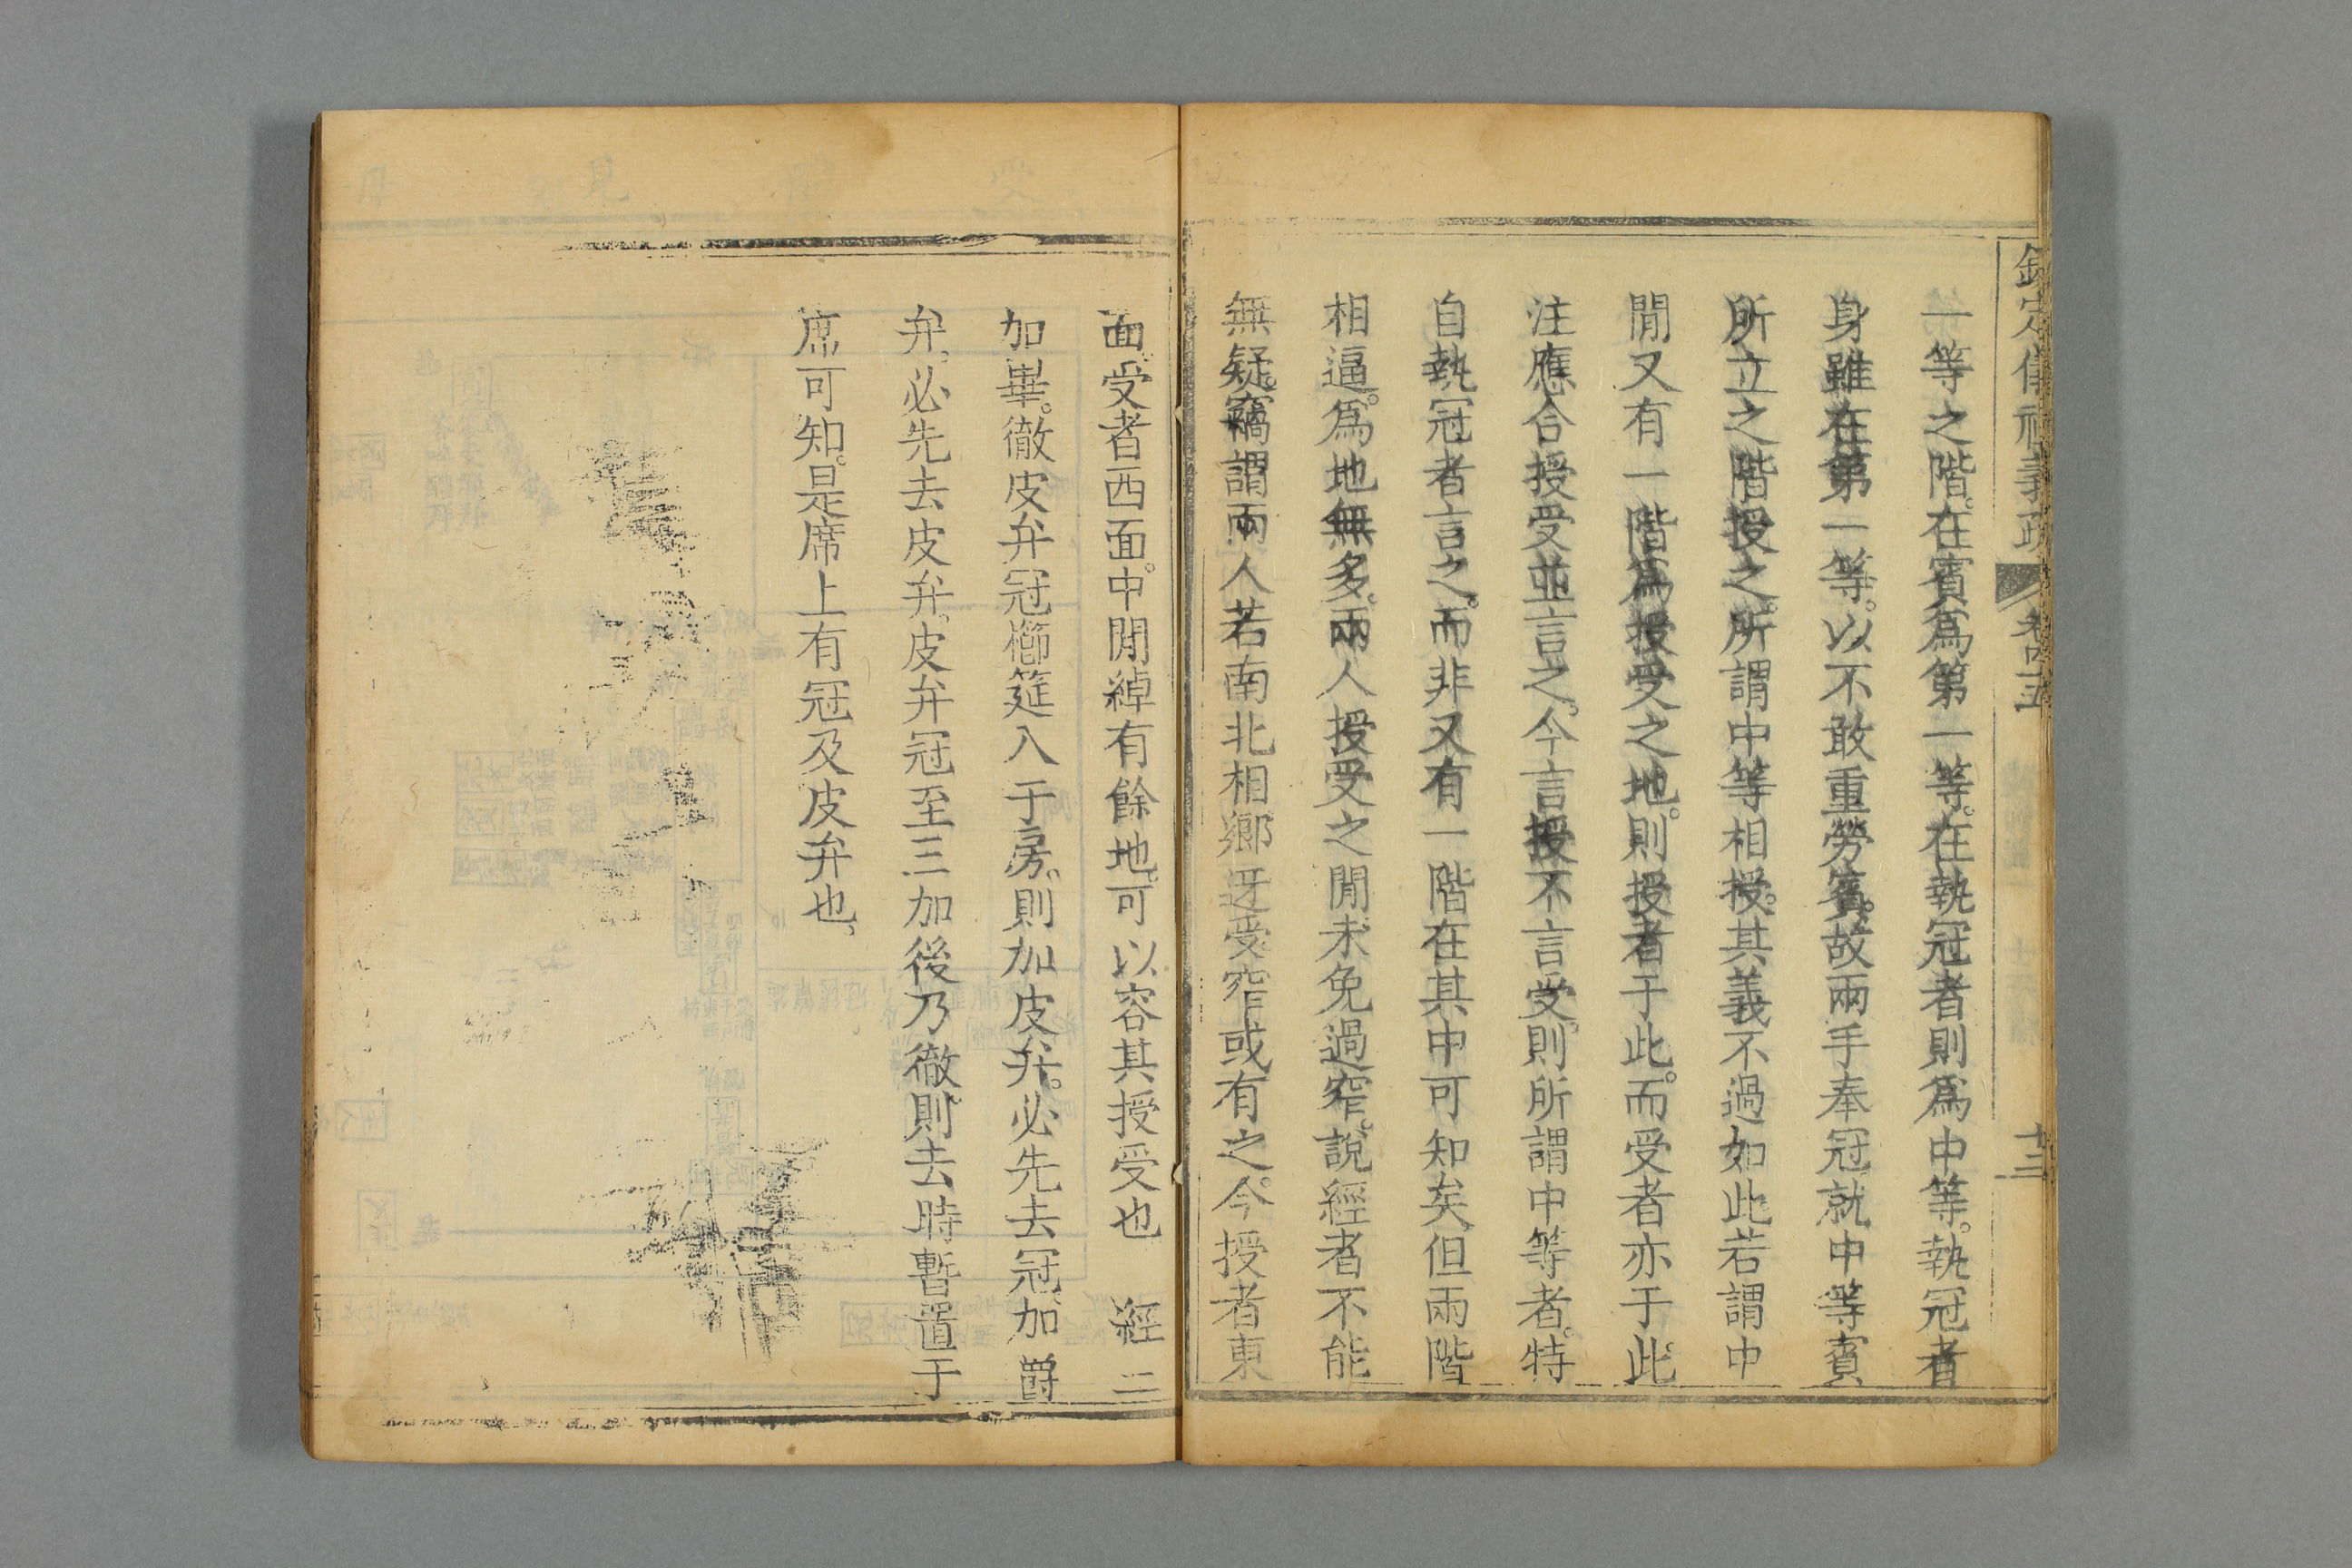 欽定儀禮義疏 卷四十五 十三
一等之階。在賓爲第一等。在執冠者則爲中等。執冠者
身雖在第一等。以不敢重勞賓。故兩手奉冠就中等賓
所立之階授之。所謂中等相授。其義不過如此若謂中
閒又有一階爲授受之地。則授者于此。而受者亦于此。
注應合授受並言之。今言授不言受。則所謂中等者。特
自執冠者言之。而非又有一階在其中可知矣但兩階
相逼。爲地無多。兩人授受之閒。未免過窄。說經者不能
無疑。竊謂兩人若南北相鄉迓受窄或有之。今授者東
面。受者西面。中閒綽有餘地。可以容其授受也 經二
加畢。徹皮弁冠櫛筵入于房。則加皮弁。必先去冠。加爵
弁。必先去皮弁。皮弁冠至三加後乃徹。則去時暫置于
席可知。是席上有冠及皮弁也。